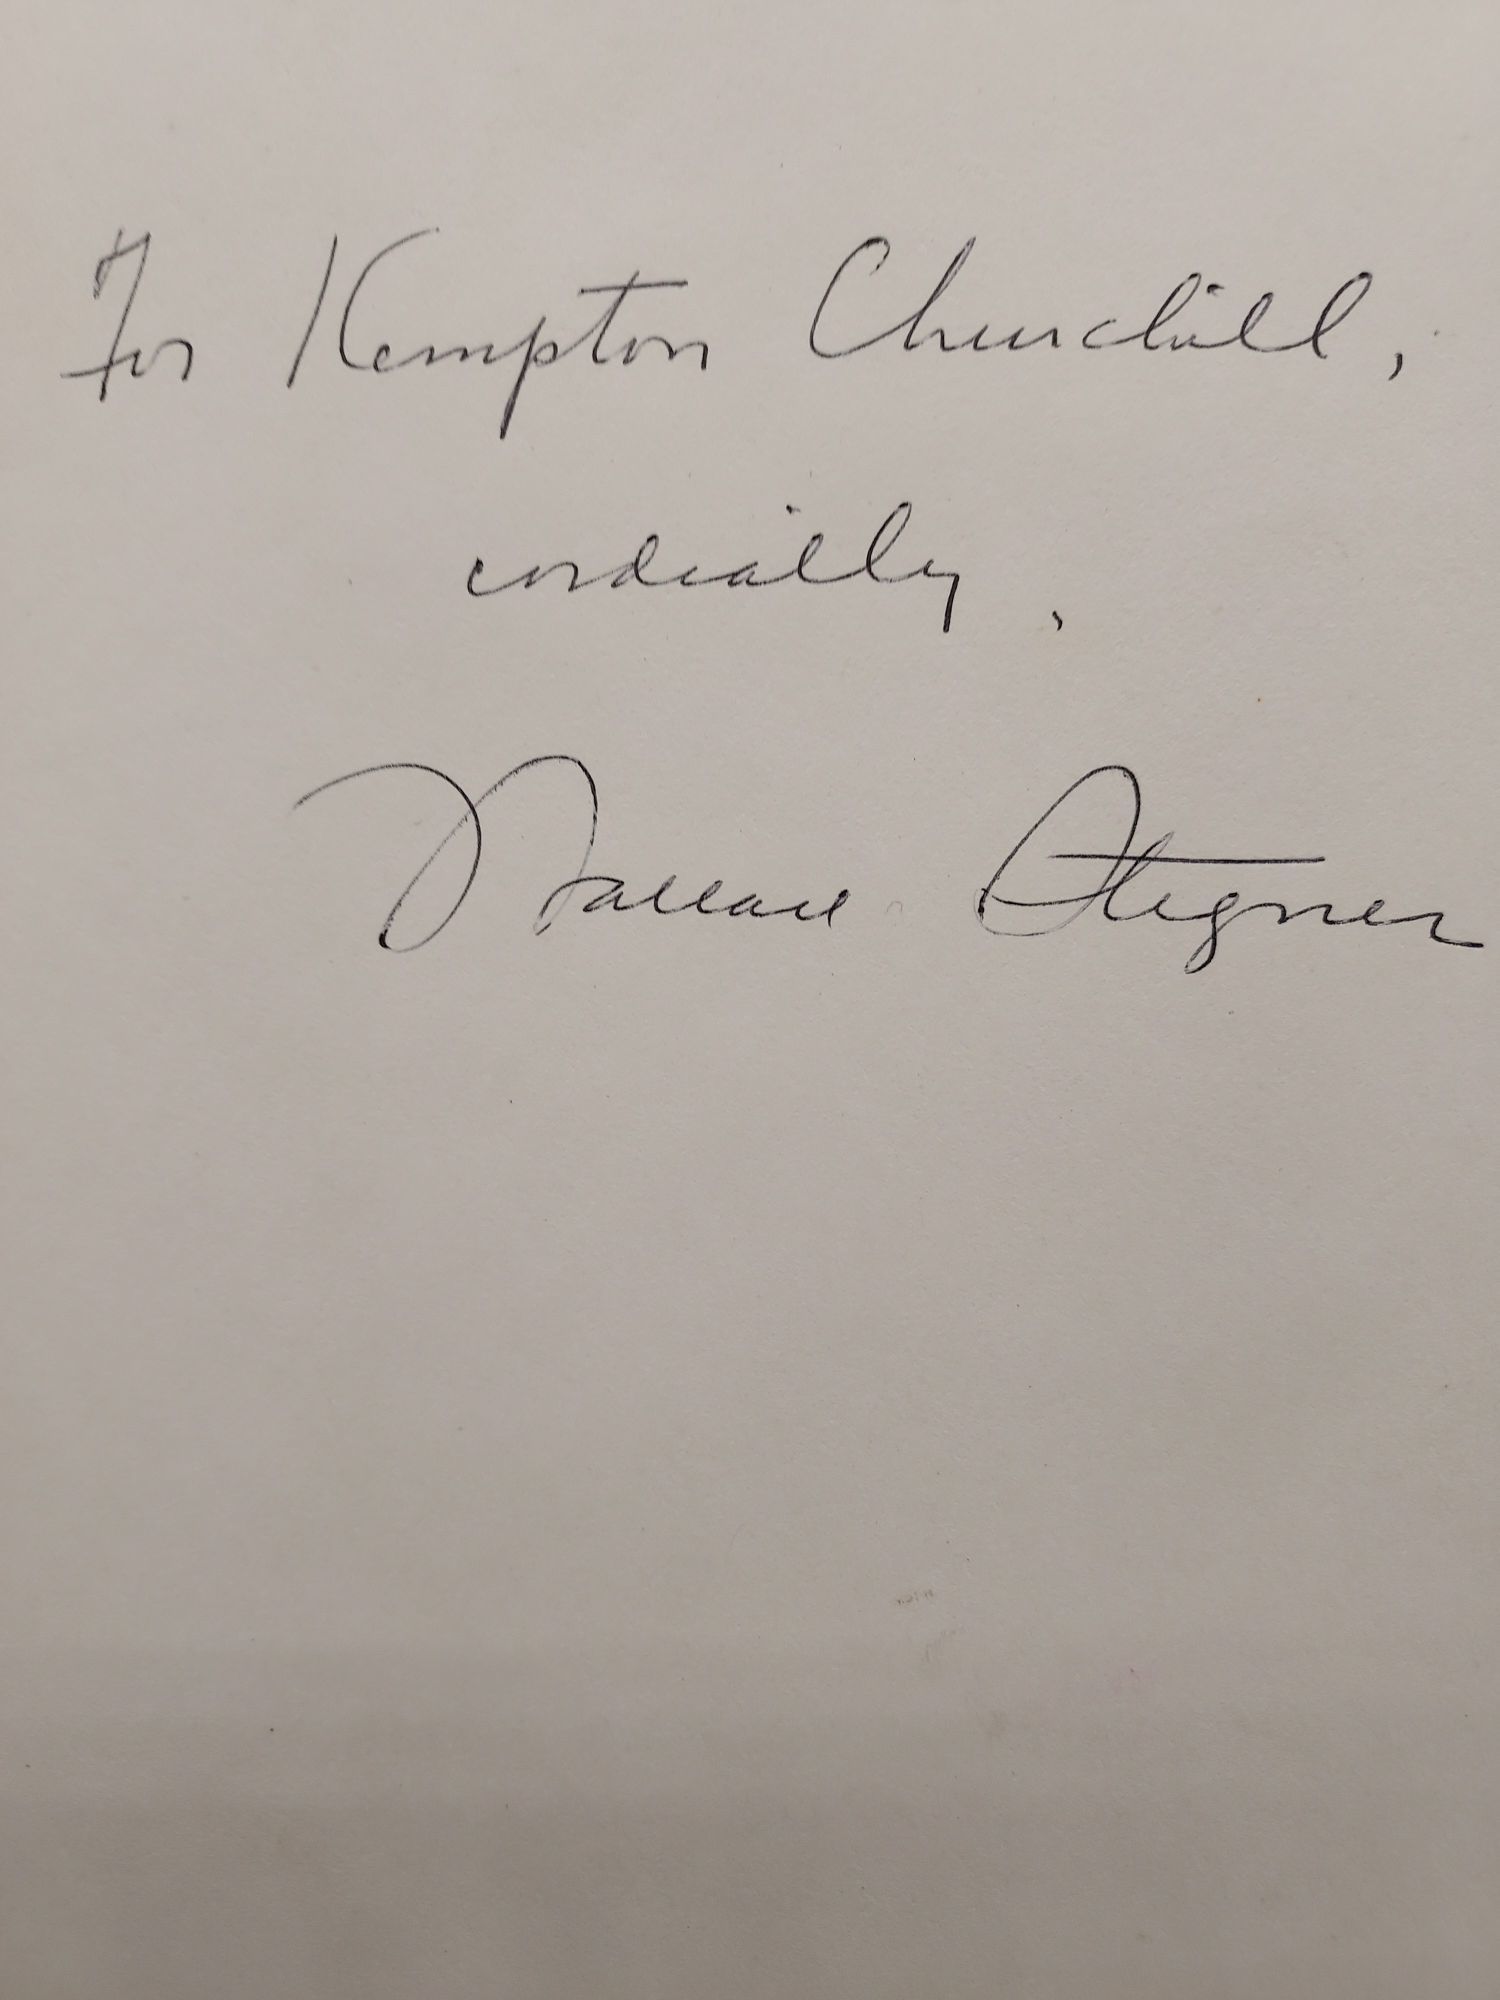 For Kempton Churchill,
cordially,
Wallace Stegner